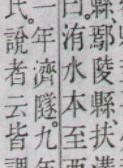 縣鄢陵縣扶溝
曰洧水本至西
一年濟隧九年
氏說者云皆謂